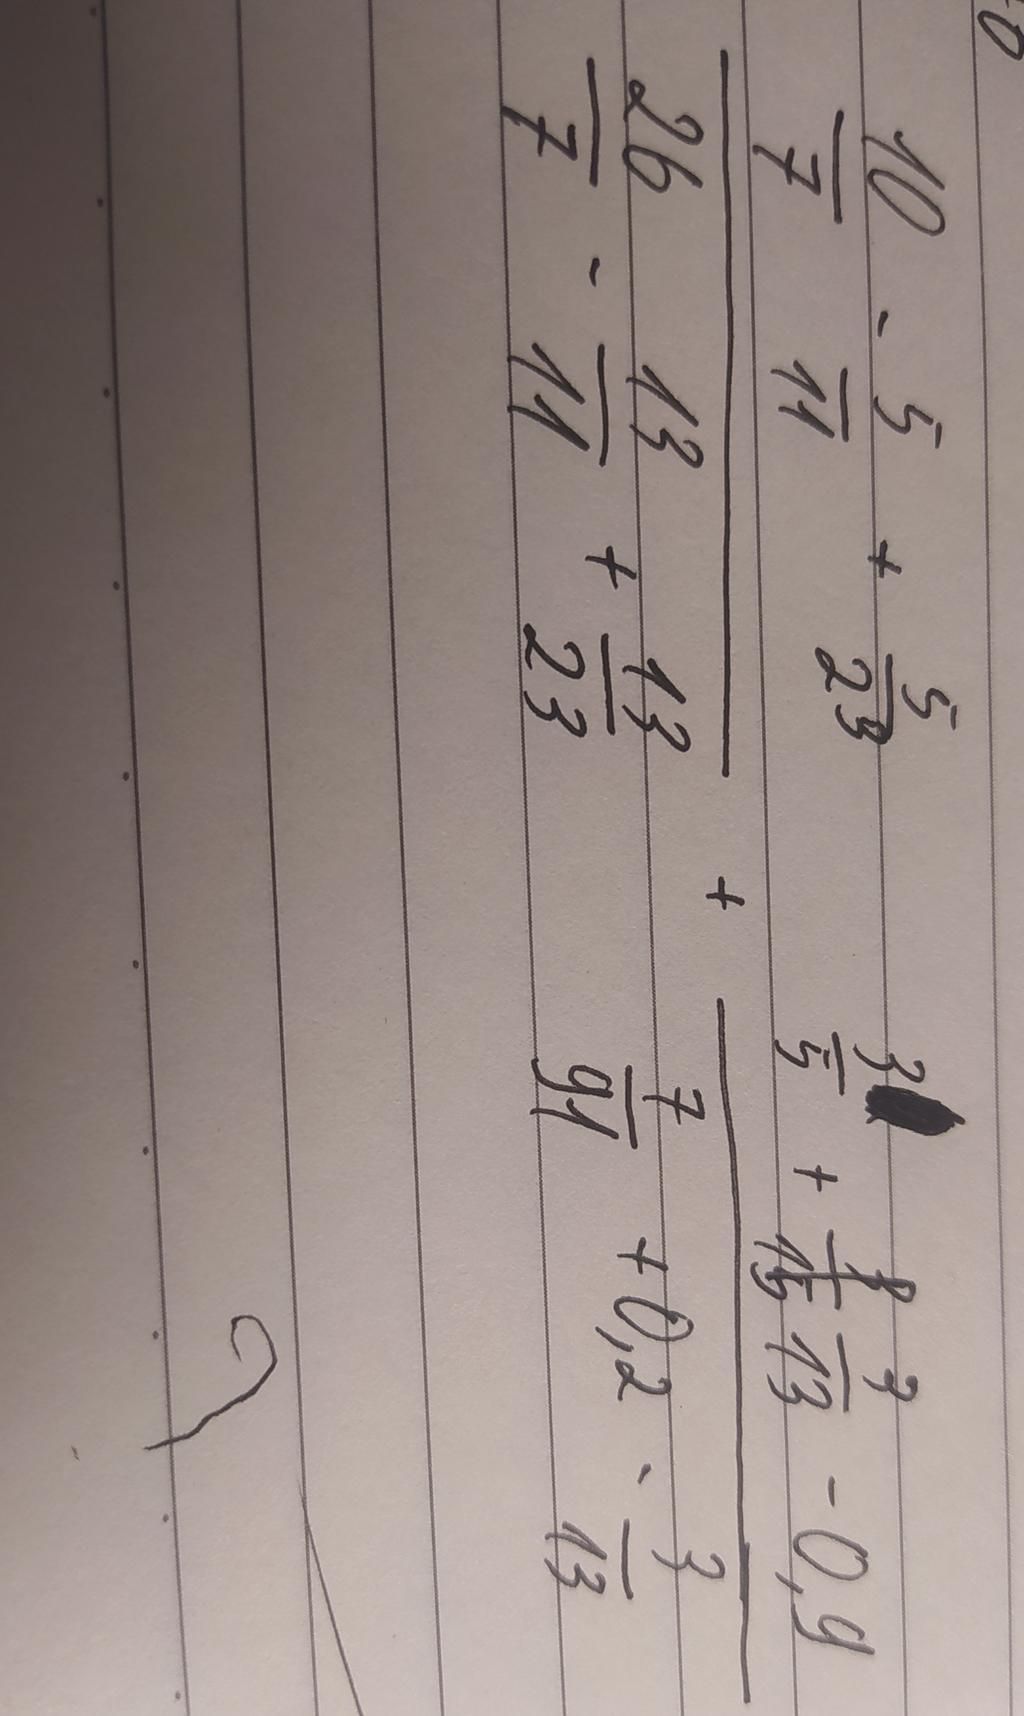 10/7 - 5/11 + 5/23
26/7 - 13/11 + 13/23
+
3/5 + 3/13 - 0,9
7/91 + 0,2 - 3/13